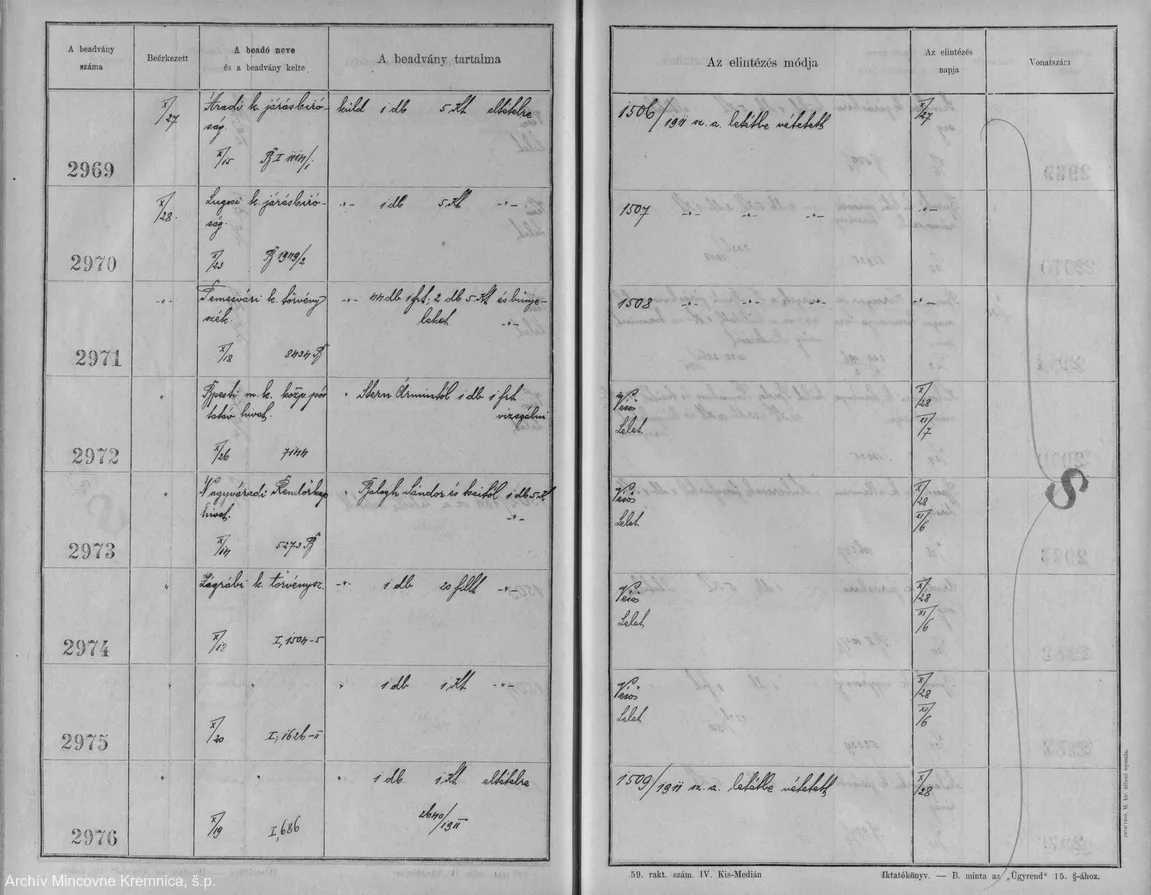 A beadvány száma
Beérkezett
A beadó neve és a beadvány kelte
A beadvány tartalma
Az elintézés módja
Az elintézés napja
Vonatszám
X/27
Aradi k. járásbíró-
ság.
küld 1 db 5 Kt eltételre
1506/1911 sz. a. letétbe vétetett
X/27
2969
X/15
X/28.
Lugosi k. járásbíró-
ság.
-"- 1 db 5 Kt -"-
1507 -"- -"- -"-
-"-
2970
X/23
B 1949/2
-"-
Temesvári k. törvény
szék.
-"- 44 db 1 frt; 2 db 5 Kt és bűnje-
leket -"-
1508 -"- -"- -"-
-"-
2971
X/18
8434 B
"
Bpesti m. k. közp. pó
táv hivat.
" Stern Ármintól 1 db 1 frt
vizsgálni
Véső
Lelet
X/28
XI/7
2972
X/26
7144
"
Nagyváradi Rendőrkap
hivat.
" Balogh Sándor és tsaitól 1 db 5 Kt
-"-
Véső
Lelet
X/28
XI/6
2973
X/14
5273 B
"
Zágrábi k. törvénysz.
-"- 1 db 20 fillt -"-
Véső
Lelet
X/28
XI/6
2974
X/18
I, 1504-5
" "
" 1 db 1 Kt -"-
Véső
Lelet
X/28
XI/6
2975
X/20
I, 1626-II
" "
" 1 db 1 Kt eltételre
1509/1911 sz. a. letétbe vétetett
X/28
2976
X/19
I, 686
2640/1911
8
59. rakt. szám. IV. Kis-Medián
Iktatókönyv. — B. minta az „Ügyrend" 15. §-ához.
Archív Mincovne Kremnica, š.p.